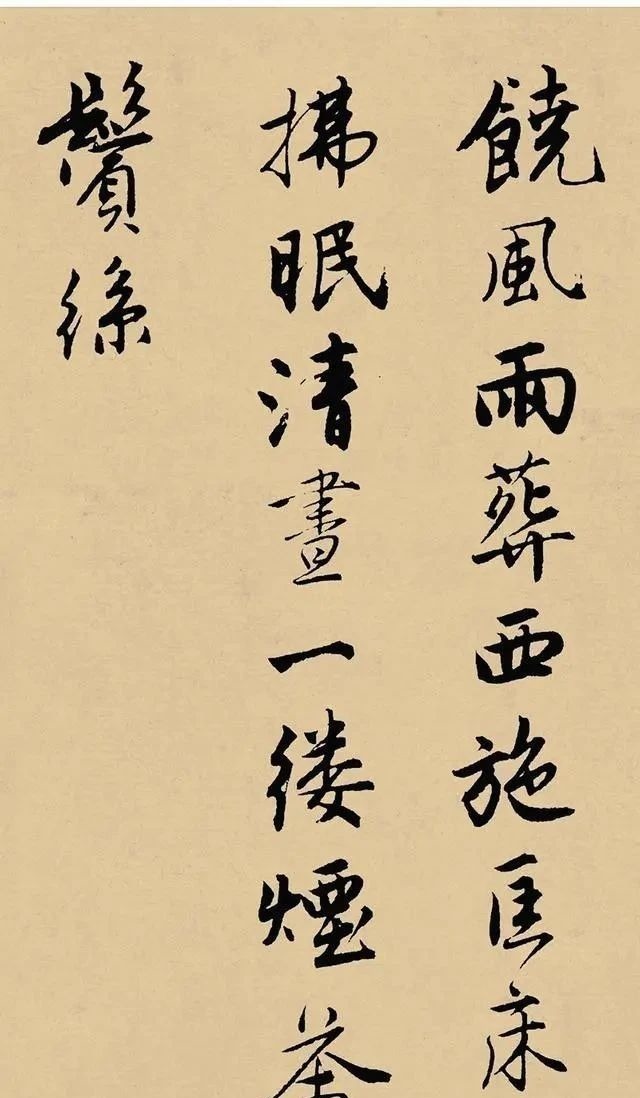 饒風雨葬西施匡床
拂眠清晝一縷煙茶
鬢絲